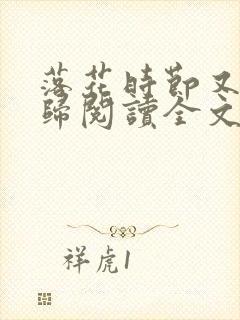 落花時節又
歸閱讀全文
祥虎1